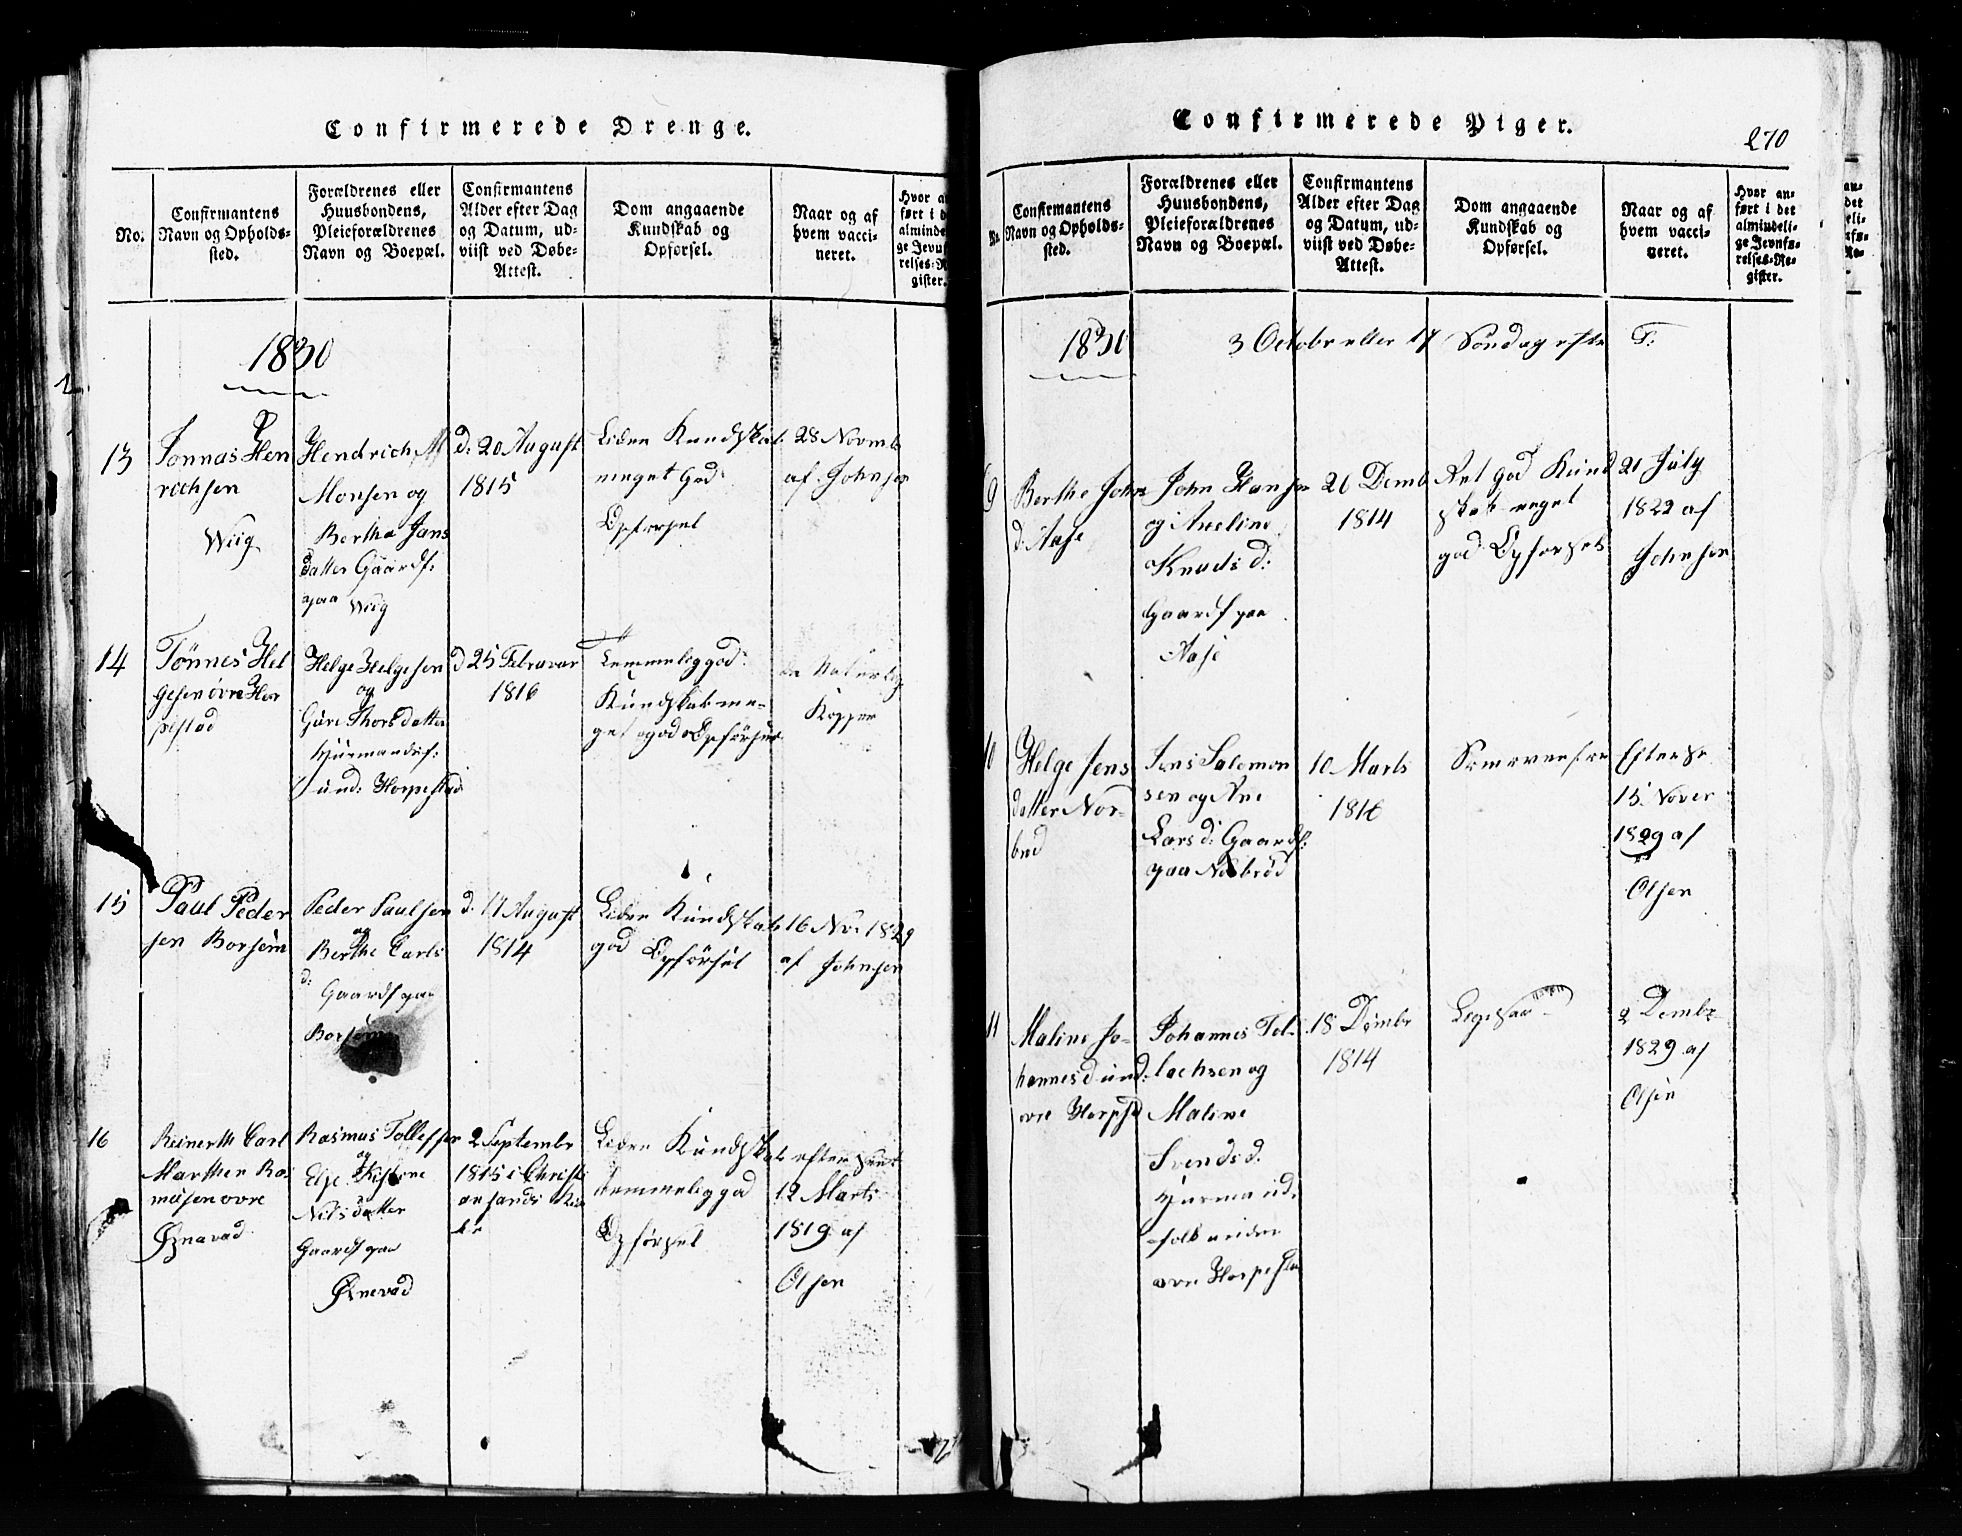 Confirmerede Drenge.
No.
Confirmantens
Navn og Opholds-
sted.
Forældrenes eller
Huusbondens,
Pleieforældrenes
Navn og Boepæl.
Confirmantens
Alder efter Dag
og Datum, ud-
viist ved Døbe-
Attest.
Dom angaaende
Kundskab og
Opførsel.
Naar og af
hvem vacci-
neret.
1830
13
Tonnas Hen
richsen
Wiig
Hendrich
Monsen og
Bertha Jans
datter Gaardf:
paa Wiig
d: 20 August
1815
Liden Kundskab
meget God
Opførsel
28 Novmb
af Johnsen
14
Tönnes Hel
gesen övre Hor
pestad
Helge Helgesen
og
Guri Thorsdatter
und: Horpestad
d 25 Februar
1816
Temmelig god
Kundskab me-
get god Opførsel
Naturlig
Kopper
15
Paul Peder
sen Borsem
Peder Paulsen
og
Berthe Carls
d:
Gaardf paa
Borsem
d. 17 August
1814
Liden Kundskab
god Opførsel
16 No. 1829
af Johnsen
16
Reinerth Carl
Marthen Ras
musen ovre
Øgnavad
Rasmus Tollefsen
og
Else Kistine
Nilsdatter
Gaardf paa
Ønevad
2 Septembr
1815 i Christi
ansands Kir
ke
Liden Kundskab
temmelig god
Opførsel
efter
12 Marts
1819 af
Olsen
Confirmerede Piger.
270
Nr.
Confirmantens
Navn og Opholds-
sted.
Forældrenes eller
Huusbondens,
Pleieforældrenes
Navn og Boepæl.
Confirmantens
Alder efter Dag
og Datum, ud-
viist ved Døbe-
Attest.
Dom angaaende
Kundskab og
Opførsel.
Naar og af
hvem vacci-
neret.
Hvor an-
ført i det
almindeli-
ge Jevnfø-
relses-Re-
gister.
1830
3 Octobr eller 17 Søndag efter T:
9
Berthe Johns
d: Aase
John Hansen
og Axeline
Knuds d:
Gaardf paa
Aase
20 Demb
1814
Ret god Kund
skab meget
god Opførsel
21 July
1822 af
Johnsen
10
Helge Jens
datter Nor-
brød
Jens Salomon
sen og Ane
Lars d: Gaardf:
paa Norbrød
10 Marts
1816
15. Nover
1829 af
Olsen
11
Maline Jo-
hannes d und:
ovre Horpst
Johannes Tol-
lachsen og
Maline
Svends d.
Huusmands
folk under
ovre Horpesta
18 Dembr
1814
Ligesaa
2 Dembr
1829 af
Olsen